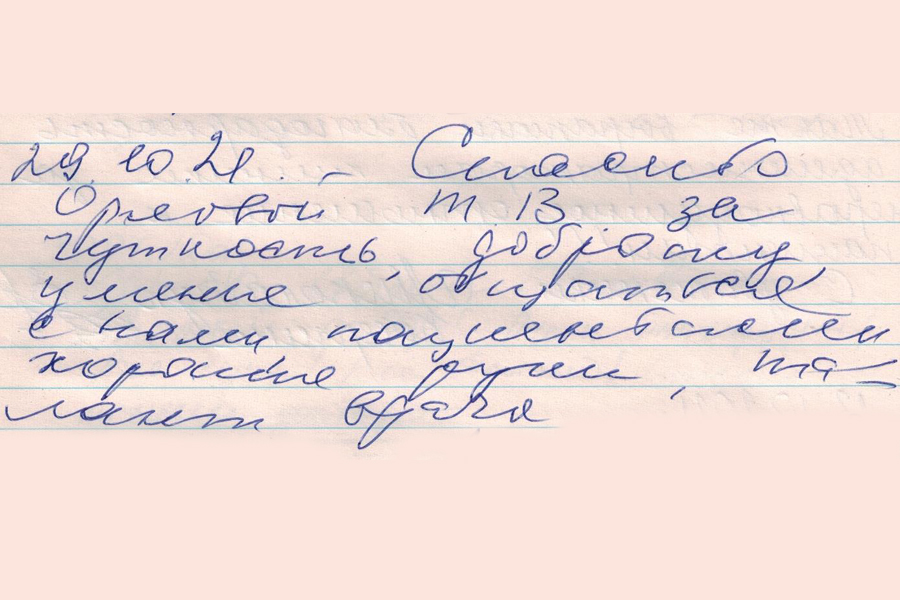 29.10.21. - Спасибо
Орловой Т В за
чуткость, доброту
умение общаться
с нами пациентами
хорошие руки, та-
лант врача